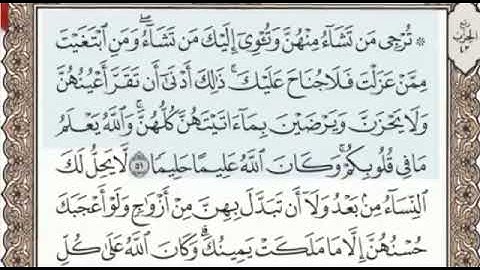 ۞ تُرْجِى مَن تَشَآءُ مِنْهُنَّ وَتُـْٔوِىٓ إِلَيْكَ مَن تَشَآءُ ۖ وَمَنِ ٱبْتَغَيْتَ
مِمَّنْ عَزَلْتَ فَلَا جُنَاحَ عَلَيْكَ ۚ ذَٰلِكَ أَدْنَىٰٓ أَن تَقَرَّ أَعْيُنُهُنَّ
وَلَا يَحْزَنَّ وَيَرْضَيْنَ بِمَآ ءَاتَيْتَهُنَّ كُلُّهُنَّ ۚ وَٱللَّهُ يَعْلَمُ
مَا فِى قُلُوبِكُمْ ۚ وَكَانَ ٱللَّهُ عَلِيمًا حَلِيمًا ٥١ لَّا يَحِلُّ لَكَ
ٱلنِّسَآءُ مِنۢ بَعْدُ وَلَآ أَن تَبَدَّلَ بِهِنَّ مِنْ أَزْوَٰجٍ وَلَوْ أَعْجَبَكَ
حُسْنُهُنَّ إِلَّا مَا مَلَكَتْ يَمِينُكَ ۗ وَكَانَ ٱللَّهُ عَلَىٰ كُلِّ
ربع
الحزب
٤٣